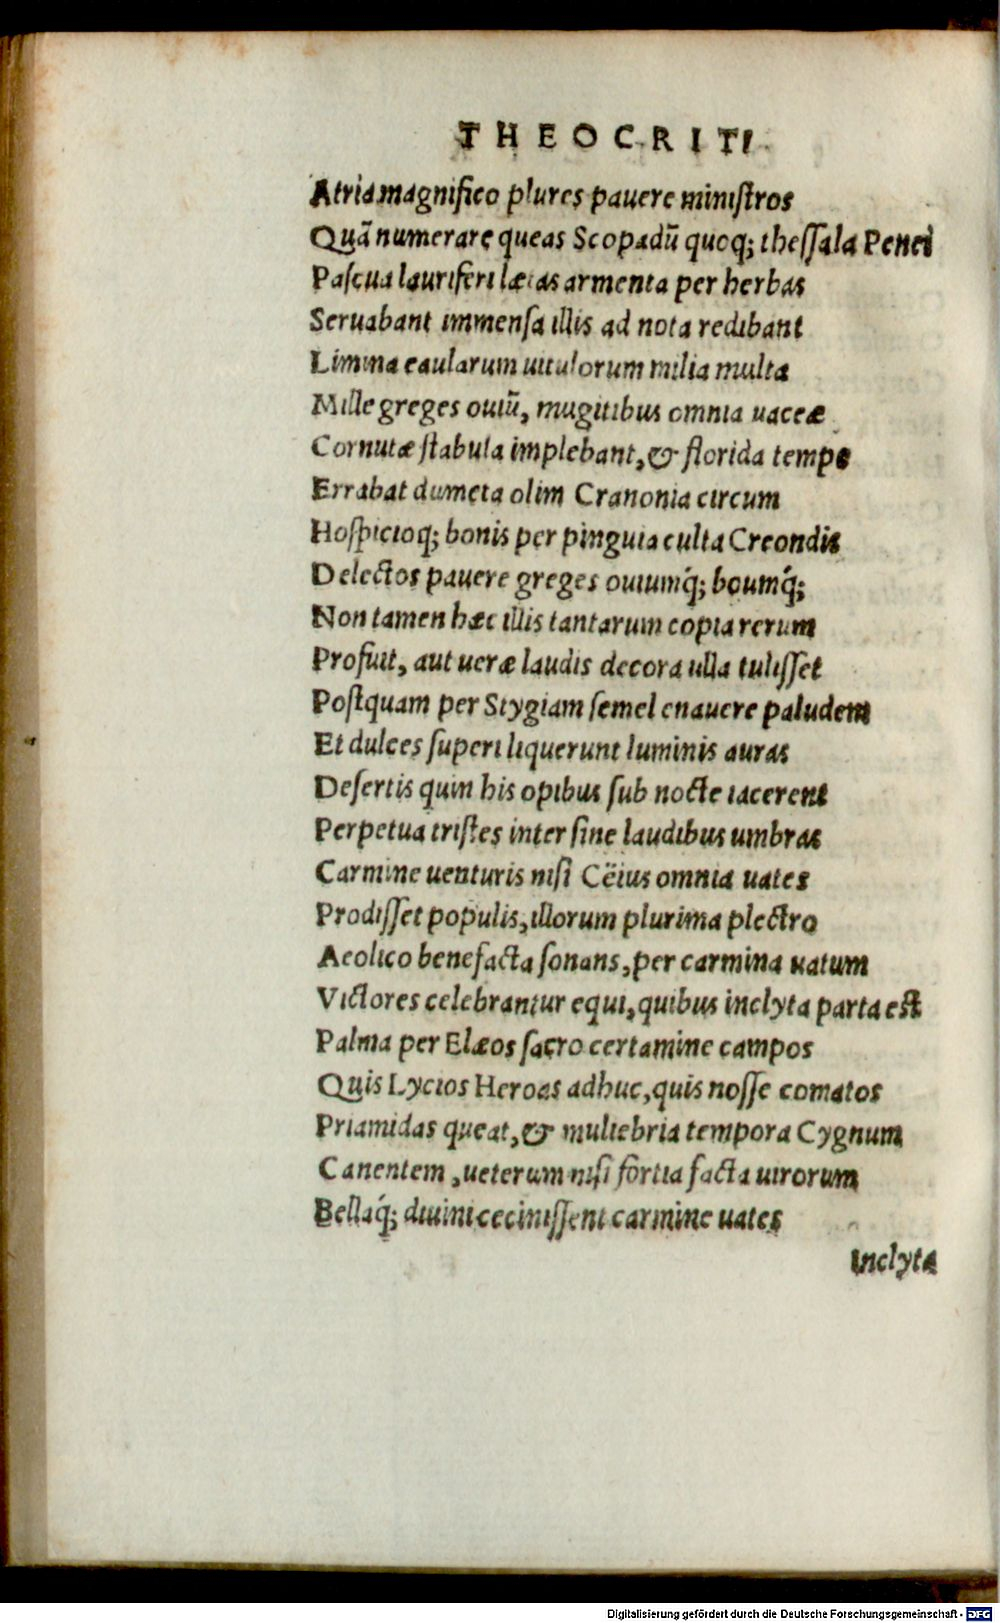 THEOCRITI
Atria magnifico plures pauere ministros
Quā numerare queas Scopadū quoq; thessala Penei
Pascua lauriferi lætas armenta per herbas
Seruabant immensa illis ad nota redibant
Limina caularum uitulorum milia multa
Mille greges ouiū, mugitibus omnia uaccæ
Cornutæ stabula implebant, & florida tempe
Errabat dumeta olim Cranonia circum
Hospicioq; bonis per pinguia culta Creondis
Delectos pauere greges ouiumq́; boumq́;
Non tamen hæc illis tantarum copia rerum
Profuit, aut ueræ laudis decora ulla tulisset
Postquam per Stygiam semel enauere paludem
Et dulces superi liquerunt luminis auras
Desertis quin his opibus sub nocte iacerent
Perpetua tristes inter sine laudibus umbras
Carmine uenturis nisi Cëius omnia uates
Prodisset populis, illorum plurima plectro
Aeolico benefacta sonans, per carmina uatum
Victores celebrantur equi, quibus inclyta parta est
Palma per Elæos sacro certamine campos
Quis Lycios Heroas adhuc, quis nosse comatos
Priamidas queat, & muliebria tempora Cygnum
Canentem, ueterum nisi fortia facta uirorum
Bellaq́; diuini cecinissent carmine uates
inclyta
Digitalisierung gefördert durch die Deutsche Forschungsgemeinschaft - DFG